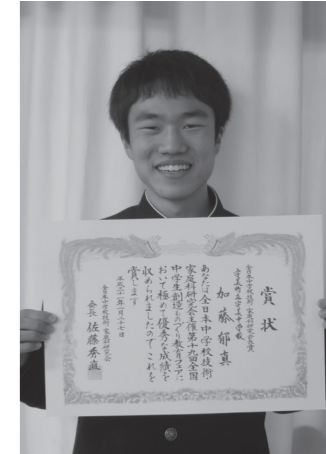 賞状
加藤郁真
あなたは全日本中学校技術・
家庭科研究会主催第十九回全国
中学生創造ものづくり教育フェアに
おいて極めて優秀な成績を
収められましたのでこれを
賞します
平成三十一年一月二十七日
全日本中学校技術・家庭科研究会
会長 佐藤秀直